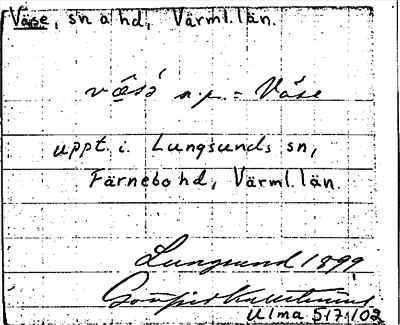 Väse, sn o hd, Värml. län.
väsə n.p. = Väse
uppt. i. Lungsunds sn,
Färnebo hd, Värml. län.
Lungsund 1899
Ulma 517:102